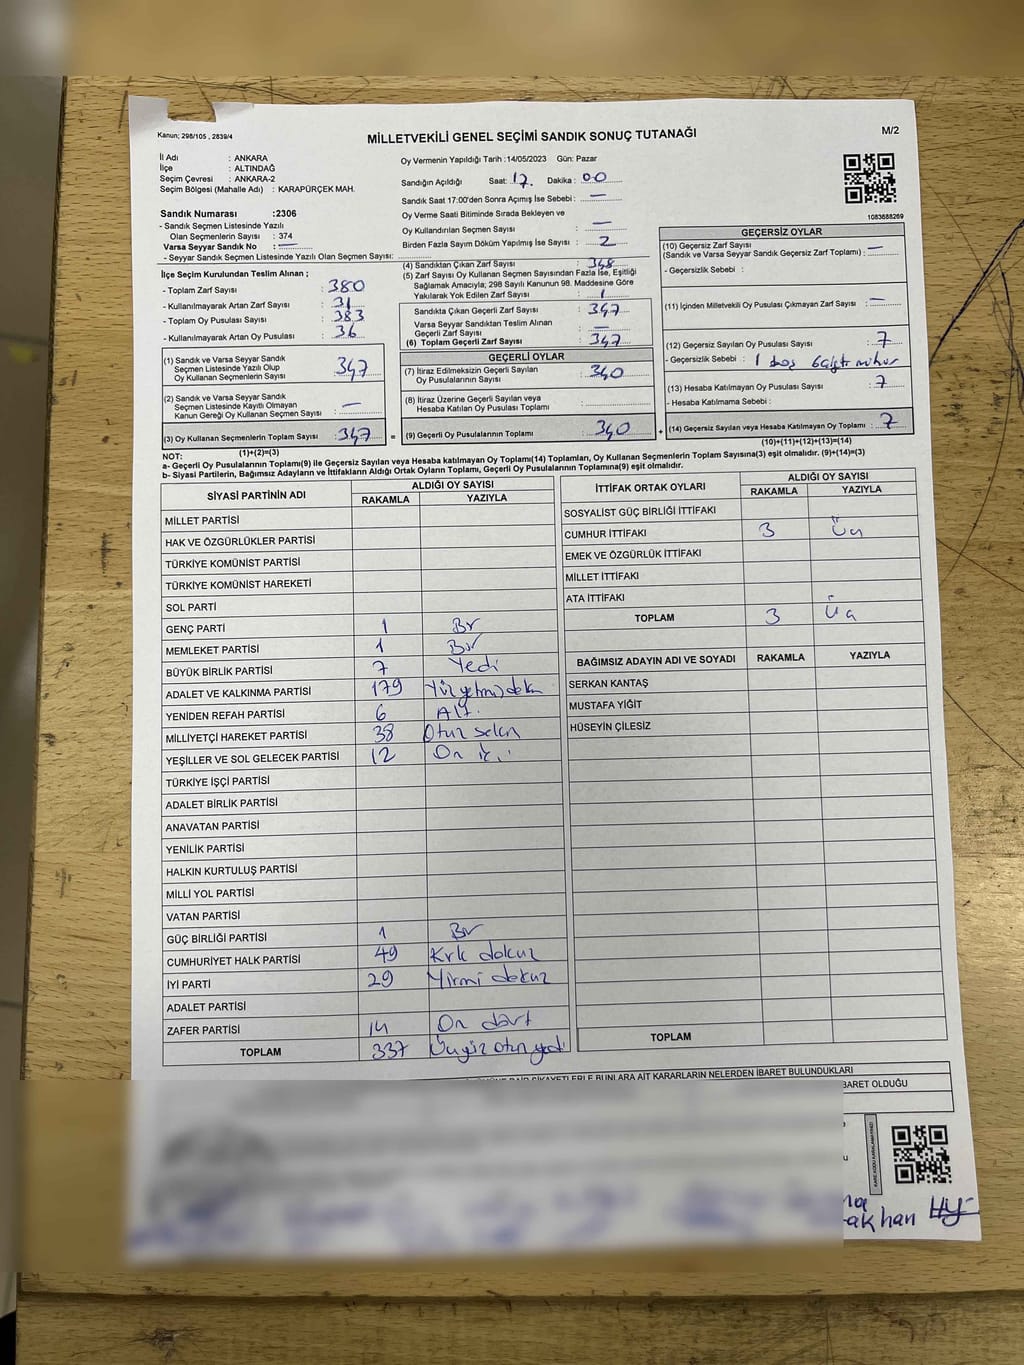 Kanun; 298/105 , 2839/4
MİLLETVEKİLİ GENEL SEÇİMİ SANDIK SONUÇ TUTANAĞI
M/2
İl Adı : ANKARA
İlçe : ALTINDAĞ
Seçim Çevresi : ANKARA-2
Seçim Bölgesi (Mahalle Adı) : KARAPÜRÇEK MAH.
Sandık Numarası :2306
- Sandık Seçmen Listesinde Yazılı
Olan Seçmenlerin Sayısı : 374
Varsa Seyyar Sandık No : —
- Seyyar Sandık Seçmen Listesinde Yazılı Olan Seçmen Sayısı:
Oy Vermenin Yapıldığı Tarih :14/05/2023 Gün: Pazar
Sandığın Açıldığı Saat: 17. Dakika : 00
Sandık Saat 17:00'den Sonra Açılmış İse Sebebi : —
Oy Verme Saati Bitiminde Sırada Bekleyen ve
Oy Kullandırılan Seçmen Sayısı : —
Birden Fazla Sayım Döküm Yapılmış İse Sayısı : 2
1083688269
İlçe Seçim Kurulundan Teslim Alınan ;
- Toplam Zarf Sayısı : 380
- Kullanılmayarak Artan Zarf Sayısı : 31
- Toplam Oy Pusulası Sayısı : 383
- Kullanılmayarak Artan Oy Pusulası : 36
(1) Sandık ve Varsa Seyyar Sandık
Seçmen Listesinde Yazılı Olup
Oy Kullanan Seçmenlerin Sayısı : 347
(2) Sandık ve Varsa Seyyar Sandık
Seçmen Listesinde Kayıtlı Olmayan
Kanun Gereği Oy Kullanan Seçmen Sayısı : —
(3) Oy Kullanan Seçmenlerin Toplam Sayısı : 347 =
(1)+(2)=(3)
(4) Sandıktan Çıkan Zarf Sayısı : 348
(5) Zarf Sayısı Oy Kullanan Seçmen Sayısından Fazla İse, Eşitliği
Sağlamak Amacıyla; 298 Sayılı Kanunun 98. Maddesine Göre
Yakılarak Yok Edilen Zarf Sayısı : 1
Sandıkta Çıkan Geçerli Zarf Sayısı : 347
Varsa Seyyar Sandıktan Teslim Alınan
Geçerli Zarf Sayısı : —
(6) Toplam Geçerli Zarf Sayısı : 347
GEÇERLİ OYLAR
(7) İtiraz Edilmeksizin Geçerli Sayılan
Oy Pusulalarının Sayısı : 340
(8) İtiraz Üzerine Geçerli Sayılan veya
Hesaba Katılan Oy Pusulası Toplamı :
(9) Geçerli Oy Pusulalarının Toplamı : 340 +
GEÇERSİZ OYLAR
(10) Geçersiz Zarf Sayısı
(Sandık ve Varsa Seyyar Sandık Geçersiz Zarf Toplamı) : —
- Geçersizlik Sebebi :
(11) İçinden Milletvekili Oy Pusulası Çıkmayan Zarf Sayısı : —
(12) Geçersiz Sayılan Oy Pusulası Sayısı : 7
- Geçersizlik Sebebi : 1 boş 6 çift mühür
(13) Hesaba Katılmayan Oy Pusulası Sayısı : 7
- Hesaba Katılmama Sebebi :
(14) Geçersiz Sayılan veya Hesaba Katılmayan Oy Toplam : 7
(10)+(11)+(12)+(13)=(14)
NOT:
a- Geçerli Oy Pusulalarının Toplamı(9) ile Geçersiz Sayılan veya Hesaba Katılmayan Oy Toplamı(14) Toplamları, Oy Kullanan Seçmenlerin Toplam Sayısına(3) eşit olmalıdır. (9)+(14)=(3)
b- Siyasi Partilerin, Bağımsız Adayların ve İttifakların Aldığı Ortak Oyların Toplamı, Geçerli Oy Pusulalarının Toplamına(9) eşit olmalıdır.
SİYASİ PARTİNİN ADI ALDIĞI OY SAYISI
RAKAMLA YAZIYLA
MİLLET PARTİSİ
HAK VE ÖZGÜRLÜKLER PARTİSİ
TÜRKİYE KOMÜNİST PARTİSİ
TÜRKİYE KOMÜNİST HAREKETİ
SOL PARTİ
GENÇ PARTİ 1 Bir
MEMLEKET PARTİSİ 1 Bir
BÜYÜK BİRLİK PARTİSİ 7 Yedi
ADALET VE KALKINMA PARTİSİ 179
YENİDEN REFAH PARTİSİ 6 Altı
MİLLİYETÇİ HAREKET PARTİSİ 38 Otuz sekiz
YEŞİLLER VE SOL GELECEK PARTİSİ 12 On iki
TÜRKİYE İŞÇİ PARTİSİ
ADALET BİRLİK PARTİSİ
ANAVATAN PARTİSİ
YENİLİK PARTİSİ
HALKIN KURTULUŞ PARTİSİ
MİLLİ YOL PARTİSİ
VATAN PARTİSİ
GÜÇ BİRLİĞİ PARTİSİ 1 Bir
CUMHURİYET HALK PARTİSİ 49 Kırk dokuz
İYİ PARTİ 29 Yirmi dokuz
ADALET PARTİSİ
ZAFER PARTİSİ 14 On dört
TOPLAM 337 Üçyüz otuz yedi
İTTİFAK ORTAK OYLARI ALDIĞI OY SAYISI
RAKAMLA YAZIYLA
SOSYALİST GÜÇ BİRLİĞİ İTTİFAKI
CUMHUR İTTİFAKI 3 Üç
EMEK VE ÖZGÜRLÜK İTTİFAKI
MİLLET İTTİFAKI
ATA İTTİFAKI
TOPLAM 3 Üç
BAĞIMSIZ ADAYIN ADI VE SOYADI RAKAMLA YAZIYLA
SERKAN KANTAŞ
MUSTAFA YİĞİT
HÜSEYİN ÇİLESİZ
TOPLAM
BUNLARA AİT KARARLARIN NELERDEN İBARET BULUNDUKLARI
BARET OLDUĞU
akhan